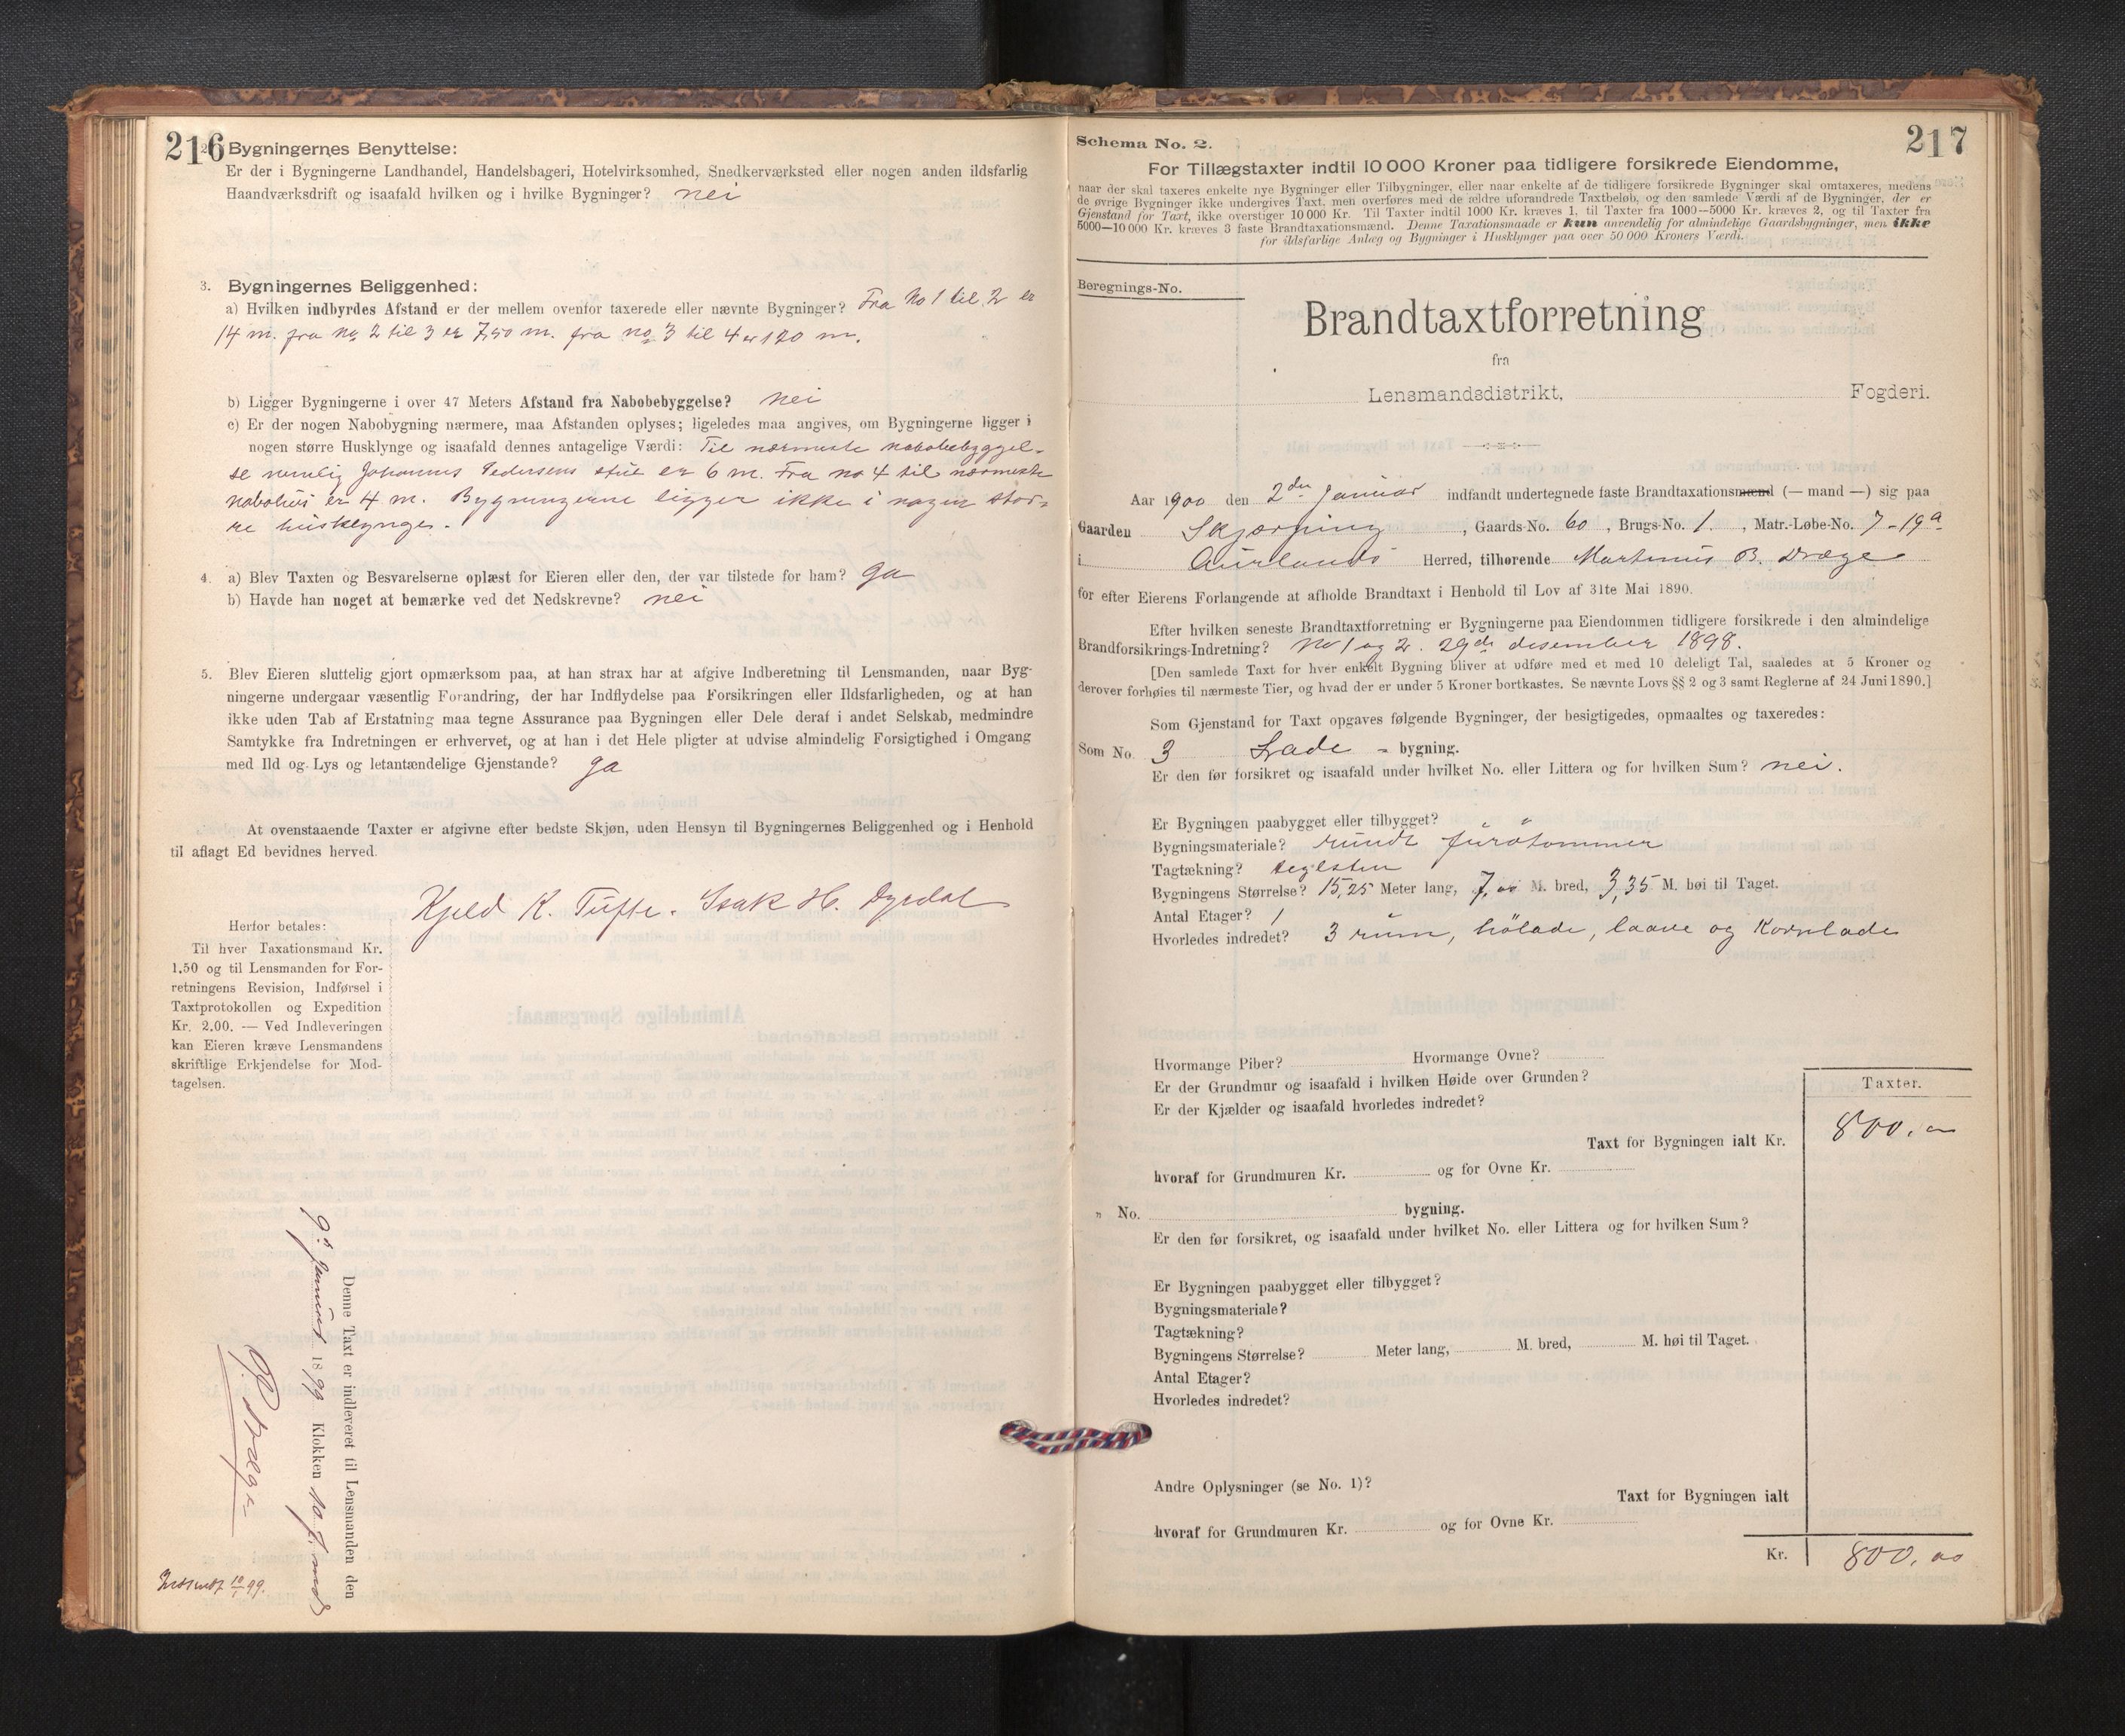 216
2. Bygningernes Benyttelse:
Er der i Bygningerne Landhandel, Handelsbageri, Hotelvirksomhed, Snedkerværksted eller nogen anden ildsfarlig
Haandværksdrift og isaafald hvilken og i hvilke Bygninger? nei
3. Bygningernes Beliggenhed:
a) Hvilken indbyrdes Afstand er der mellem ovenfor taxerede eller nævnte Bygninger? Fra No 1 til 2 er
14 m. fra no 2 til 3 er 7,50 m. fra no 3 til 4 er 120 m.
b) Ligger Bygningerne i over 47 Meters Afstand fra Nabobebyggelse? nei
c) Er der nogen Nabobygning nærmere, maa Afstanden oplyses; ligeledes maa angives, om Bygningerne ligger i
nogen større Husklynge og isaafald dennes antagelige Værdi: Til nærmeste nabobebyggel-
se nemlig Johannes Pedersens er 6 m. Fra no 4 til nærmeste
nabohus er 4 m. Bygningerne ligger ikke i nogen stør-
re husklynge.
4. a) Blev Taxten og Besvarelserne oplæst for Eieren eller den, der var tilstede for ham? ja
b) Havde han noget at bemærke ved det Nedskrevne? nei
5. Blev Eieren sluttelig gjort opmærksom paa, at han strax har at afgive Indberetning til Lensmanden, naar Byg-
ningerne undergaar væsentlig Forandring, der har Indflydelse paa Forsikringen eller Ildsfarligheden, og at han
ikke uden Tab af Erstatning maa tegne Assurance paa Bygningen eller Dele deraf i andet Selskab, medmindre
Samtykke fra Indretningen er erhvervet, og at han i det Hele pligter at udvise almindelig Forsigtighed i Omgang
med Ild og Lys og letantændelige Gjenstande? ja
At ovenstaaende Taxter er afgivne efter bedste Skjøn, uden Hensyn til Bygningernes Beliggenhed og i Henhold
til aflagt Ed bevidnes herved.
Kjeld K. Tufte. Isak H. Dyrdal
Herfor betales:
Til hver Taxationsmand Kr.
1.50 og til Lensmanden for For-
retningens Revision, Indførsel i
Taxtprotokollen og Expedition
Kr. 2.00. — Ved Indleveringen
kan Eieren kræve Lensmandens
skriftlige Erkjendelse for Mod-
tagelsen.
Denne Taxt er indleveret til Lensmanden den
9de Januar 1899 Klokken 10 f. md
Indsendt 10/1 99.
217
Schema No. 2.
For Tillægstaxter indtil 10 000 Kroner paa tidligere forsikrede Eiendomme,
naar der skal taxeres enkelte nye Bygninger eller Tilbygninger, eller naar enkelte af de tidligere forsikrede Bygninger skal omtaxeres, medens
de øvrige Bygninger ikke undergives Taxt, men overføres med de ældre uforandrede Taxtbeløb, og den samlede Værdi af de Bygninger, der er
Gjenstand for Taxt, ikke overstiger 10 000 Kr. Til Taxter indtil 1000 Kr. kræves 1, til Taxter fra 1000—5000 Kr. kræves 2, og til Taxter fra
5000—10 000 Kr. kræves 3 faste Brandtaxationsmænd. Denne Taxationsmaade er kun anvendelig for almindelige Gaardsbygninger, men ikke
for ildsfarlige Anlæg og Bygninger i Husklynger paa over 50 000 Kroners Værdi.
Beregnings-No.
Brandtaxtforretning
fra
Lensmandsdistrikt, Fogderi.
Aar 1900 den 2den Januar indfandt undertegnede faste Brandtaxationsmænd (— mand —) sig paa
Gaarden Skjærping, Gaards-No. 60, Brugs-No. 1., Matr.-Løbe-No. 7-19a
i Aurlands Herred, tilhørende Martinus B. Dræge
for efter Eierens Forlangende at afholde Brandtaxt i Henhold til Lov af 31te Mai 1890.
Efter hvilken seneste Brandtaxtforretning er Bygningerne paa Eiendommen tidligere forsikrede i den almindelige
Brandforsikrings-Indretning? No 1 og 2. 29de desember 1898.
[Den samlede Taxt for hver enkelt Bygning bliver at udføre med et med 10 deleligt Tal, saaledes at 5 Kroner og
derover forhøies til nærmeste Tier, og hvad der er under 5 Kroner bortkastes. Se nævnte Lovs §§ 2 og 3 samt Reglerne af 24 Juni 1890.]
Som Gjenstand for Taxt opgaves følgende Bygninger, der besigtigedes, opmaaltes og taxeredes:
Som No. 3 Lade - bygning.
Er den før forsikret og isaafald under hvilket No. eller Littera og for hvilken Sum? nei.
Er Bygningen paabygget eller tilbygget?
Bygningsmateriale? rundt furutømmer
Tagtækning? teglsten
Bygningens Størrelse? 15,25 Meter lang, 7,00 M. bred, 3,35 M. høi til Taget.
Antal Etager? 1
Hvorledes indredet? 3 rum, hølade, laave og Kornlade
Hvormange Piber? Hvormange Ovne?
Er der Grundmur og isaafald i hvilken Høide over Grunden?
Er der Kjælder og isaafald hvorledes indredet?
Taxter.
Taxt for Bygningen ialt Kr. 800,00
hvoraf for Grundmuren Kr. og for Ovne Kr.
" No. bygning.
Er den før forsikret, og isaafald under hvilket No. eller Littera og for hvilken Sum?
Er Bygningen paabygget eller tilbygget?
Bygningsmateriale?
Tagtækning?
Bygningens Størrelse? Meter lang, M. bred, M. høi til Taget.
Antal Etager?
Hvorledes indredet?
Andre Oplysninger (se No. 1)?
Taxt for Bygningen ialt
hvoraf for Grundmuren Kr. og for Ovne Kr.
Kr. 800,00